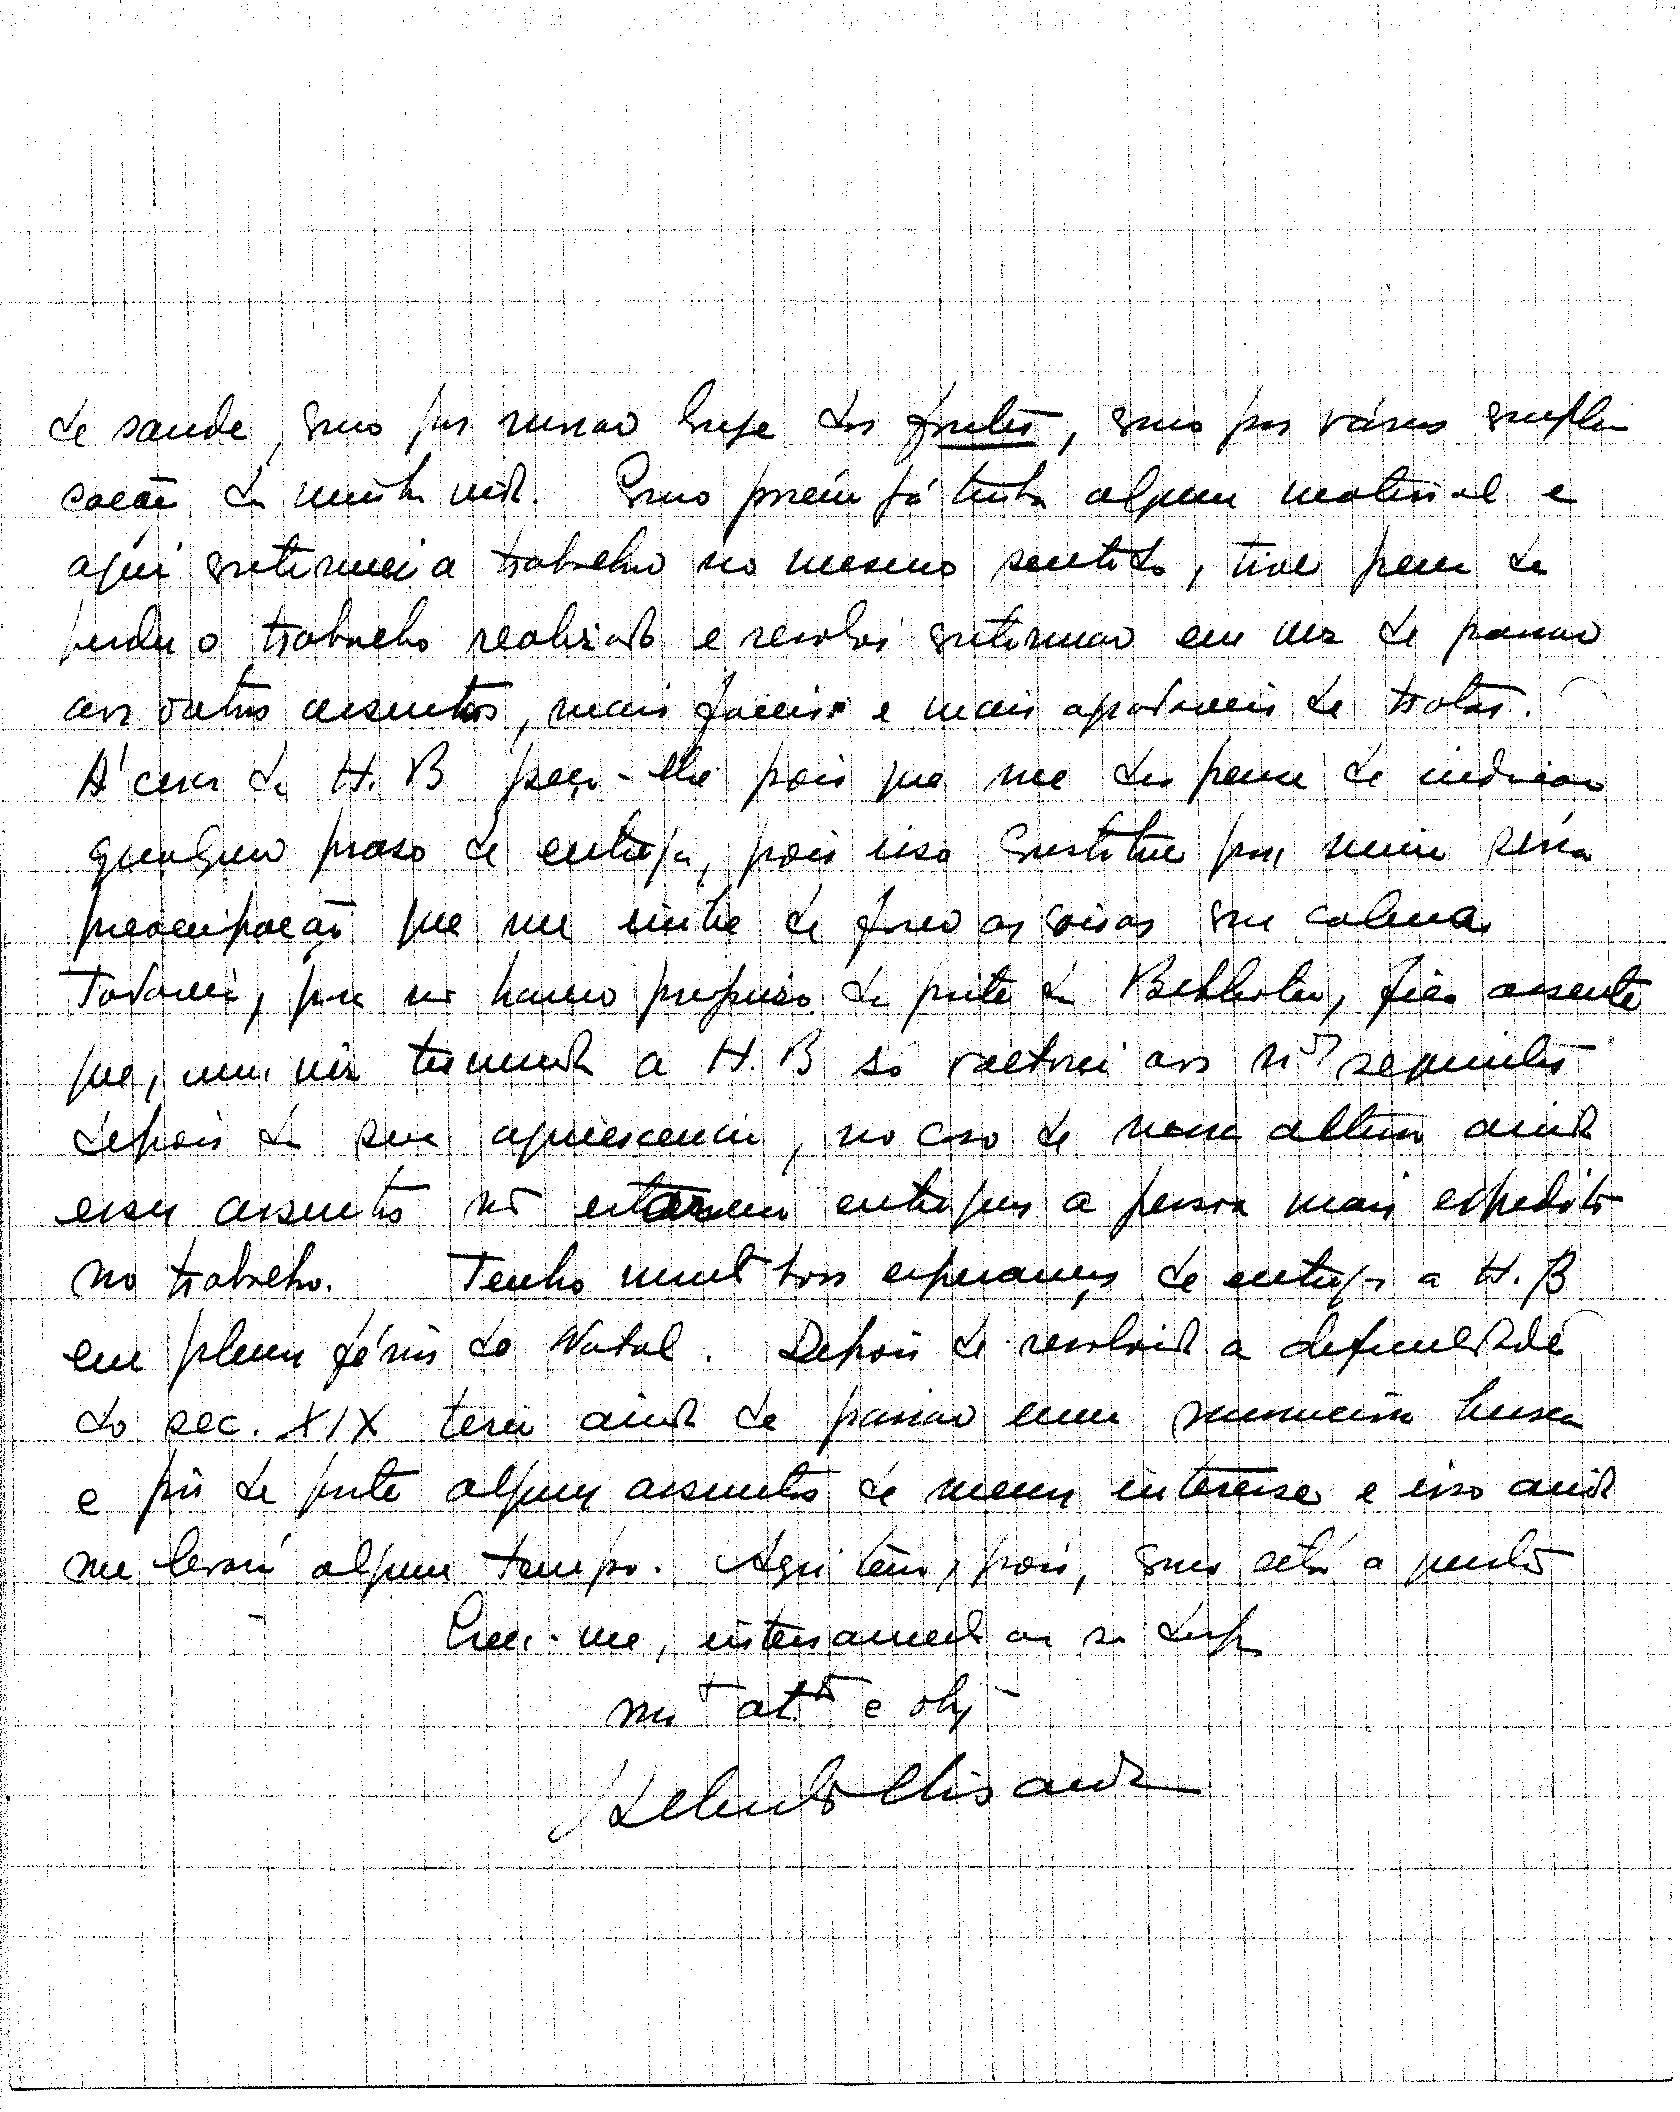 de saude, como por morar longe das fontes, como por várias compli
cações da minha vida. Como porém já tinha algum material e
aqui continuei a trabalhar no mesmo sentido, tive pena de
perder o trabalho realizado e resolvi continuar em vez de passar
aos outros assuntos, mais faceis e mais agradaveis de tratar.
A'cerca da H. B peço-lhe pois que me dispense de indicar
qualquer praso de entrega, pois isso constitue para mim séria
preocupação que me inibe de fazer as coisas com calma.
Todavia, para não haver prejuizo da parte da Biblioteca, fica assente
que, uma vez terminada a H. B só voltarei aos nos seguintes
depois da sua aquiescencia, no caso de nessa altura ainda
esses assuntos não estarem entregues a pessoa mais expedita
no trabalho. Tenho muito boas esperanças de entregar a H. B
em plenas férias do Natal. Depois de resolvida a dificuldade
do sec. XIX terei ainda de passar uma busca
e pôr de parte alguns assuntos de menos interesse e isso ainda
me levará algum tempo. Aqui tem, pois, como está a questão
Creia-me, inteiramente ao seu dispor
mto atto e obg